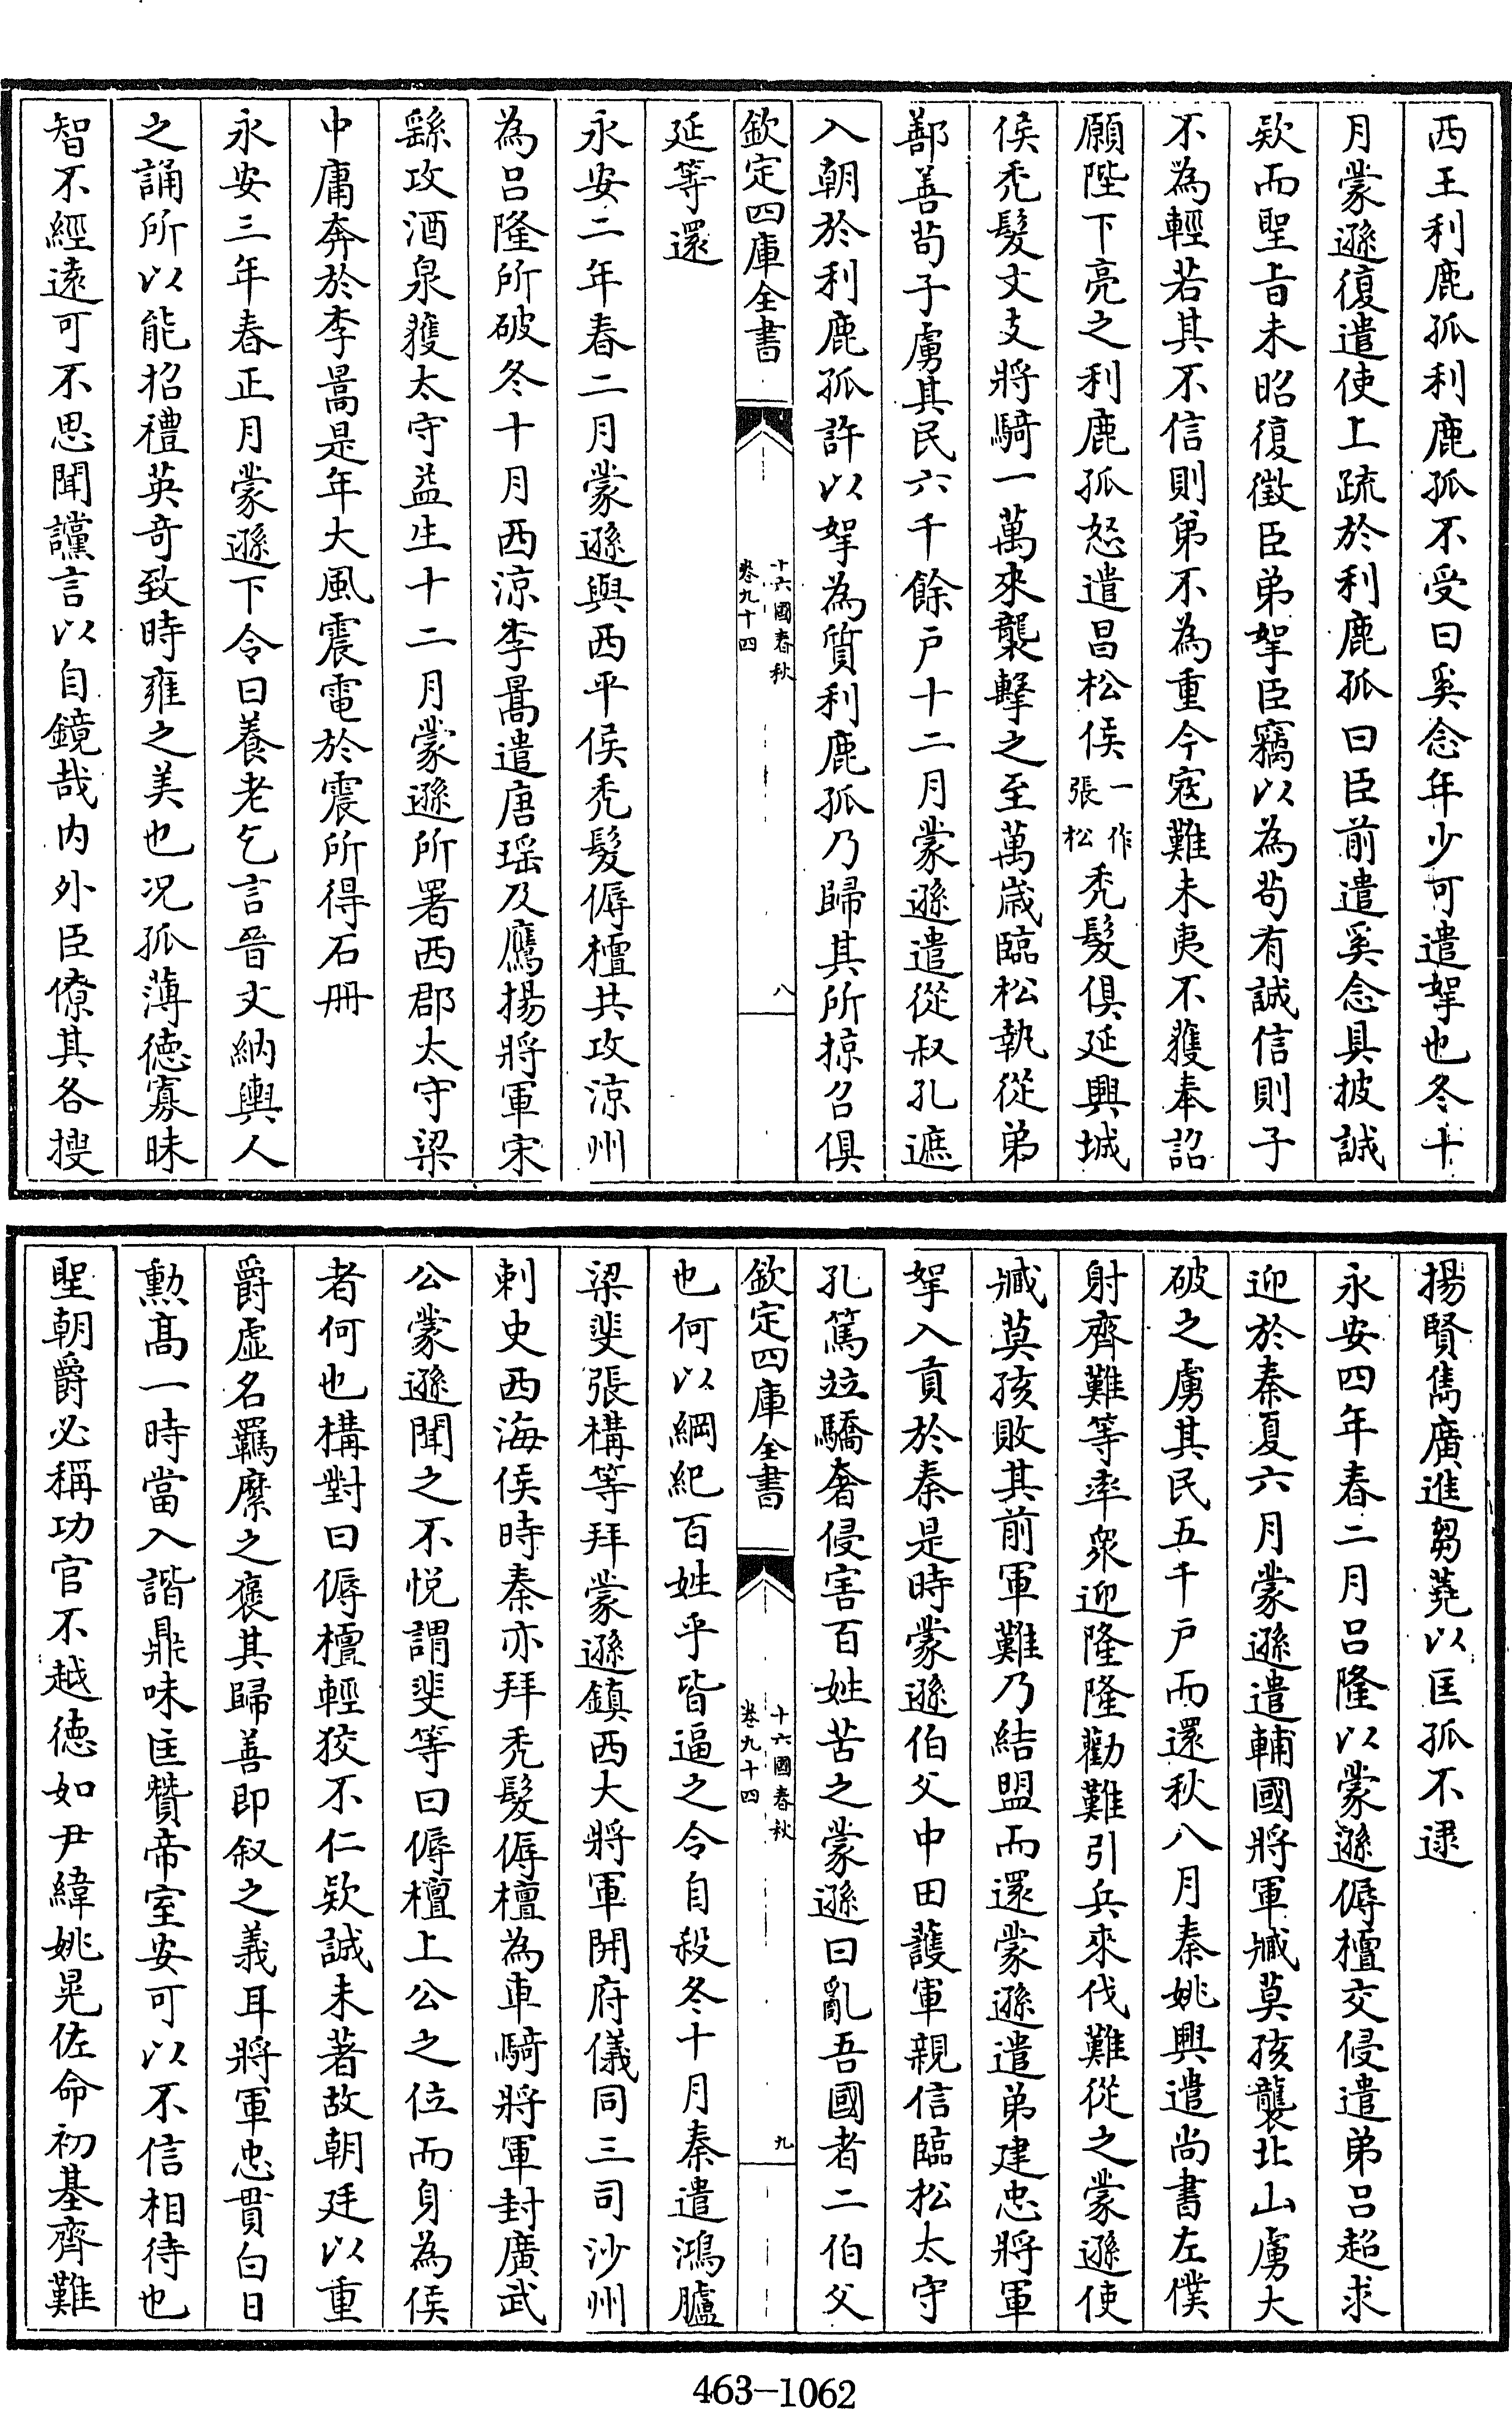 西王利鹿孤利鹿孤不受曰奚念年少可遣挐也冬十
月蒙遜復遣使上疏於利鹿孤曰臣前遣奚念具披誠
欵而聖旨未昭復徵臣弟挐臣竊以為茍有誠信則子
不為輕若其不信則弟不為重今寇難未夷不獲奉詔
願陛下亮之利鹿孤怒遣昌松侯一作張松禿髮俱延興城
侯禿髮文支將騎一萬來襲擊之至萬歲臨松執從弟
鄯善茍子虜其民六千餘户十二月蒙遜遣從叔孔遮
入朝於利鹿孤許以挐為質利鹿孤乃歸其所掠召俱
欽定四庫全書
十六國春秋
卷九十四
八
延等還
永安二年春二月蒙遜與西平侯禿髮傉檀共攻涼州
為吕隆所破冬十月西涼李暠遣唐瑶及鷹揚將軍宋
繇攻酒泉獲太守益生十二月蒙遜所署西郡太守梁
中庸奔於李暠是年大風震電於震所得石冊
永安三年春正月蒙遜下令曰養老乞言晉文納輿人
之誦所以能招禮英奇致時雍之美也况孤薄德寡昧
智不經遠可不思聞讜言以自鏡哉内外臣僚其各搜
揚賢雋廣進芻蕘以匡孤不逮
永安四年春二月吕隆以蒙遜傉檀交侵遣弟吕超求
迎於秦夏六月蒙遜遣輔國將軍臧莫孩襲北山虜大
破之虜其民五千户而還秋八月秦姚興遣尚書左僕
射齊難等率衆迎隆隆勸難引兵來伐難從之蒙遜使
臧莫孩敗其前軍難乃結盟而還蒙遜遣弟建忠將軍
挐入貢於秦是時蒙遜伯父中田護軍親信臨松太守
孔篤竝驕奢侵害百姓苦之蒙遜曰亂吾國者二伯父
欽定四庫全書
十六國春秋
卷九十四
九
也何以綱紀百姓乎皆逼之令自殺冬十月秦遣鴻臚
梁斐張構等拜蒙遜鎮西大將軍開府儀同三司沙州
刺史西海侯時秦亦拜禿髮傉檀為車騎將軍封廣武
公蒙遜聞之不悦謂斐等曰傉檀上公之位而身為侯
者何也構對曰傉檀輕狡不仁欵誠未著故朝廷以重
爵虚名羈縻之褒其歸善即叙之義耳將軍忠貫白日
勲髙一時當入諧鼎味匡贊帝室安可以不信相待也
聖朝爵必稱功官不越德如尹緯姚晃佐命初基齊難
463-1062